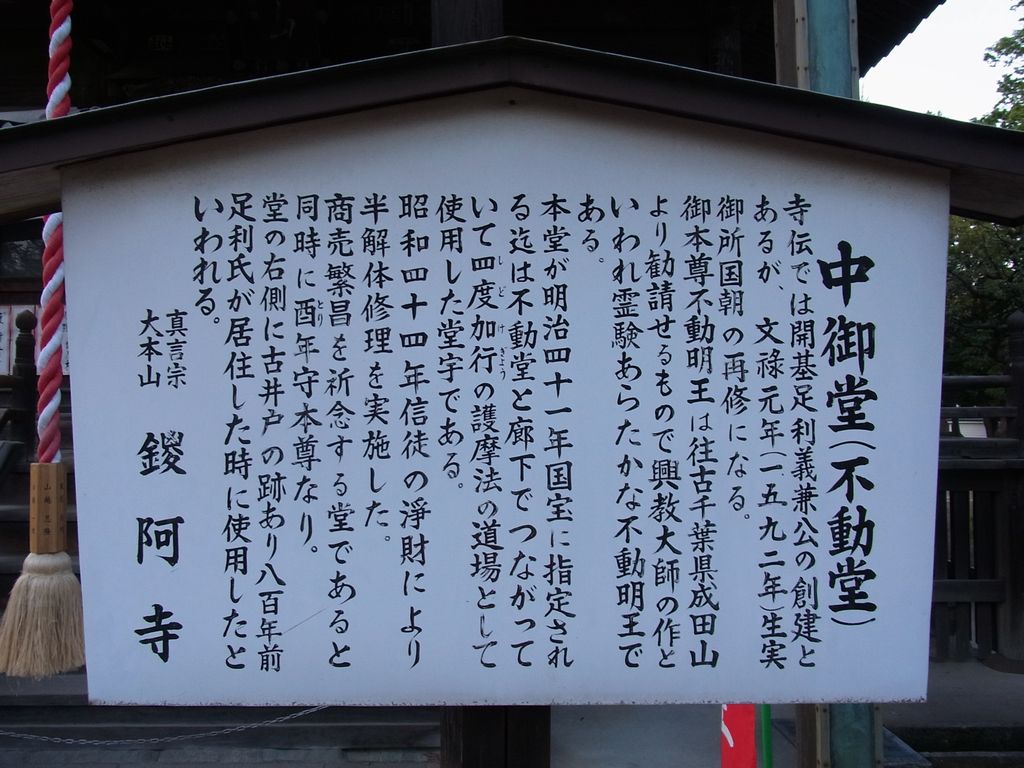 中御堂(不動堂)
寺伝では開基足利義兼公の創建と
あるが、文禄元年(一五九二年)生実
御所国朝の再修になる。
御本尊不動明王は往古千葉県成田山
より勧請せるもので興教大師の作と
いわれ霊験あらたかな不動明王で
ある。
本堂が明治四十一年国宝に指定され
る迄は不動堂と廊下でつながって
いて四度加行の護摩法の道場として
しどけぎょう
使用した堂宇である。
昭和四十四年信徒の浄財により
半解体修理を実施した。
商売繁昌を祈念する堂であると
同時に酉年守本尊なり。
とり
堂の右側に古井戸の跡あり八百年前
足利氏が居住した時に使用したと
いわれる。
真言宗
大本山
鑁阿寺